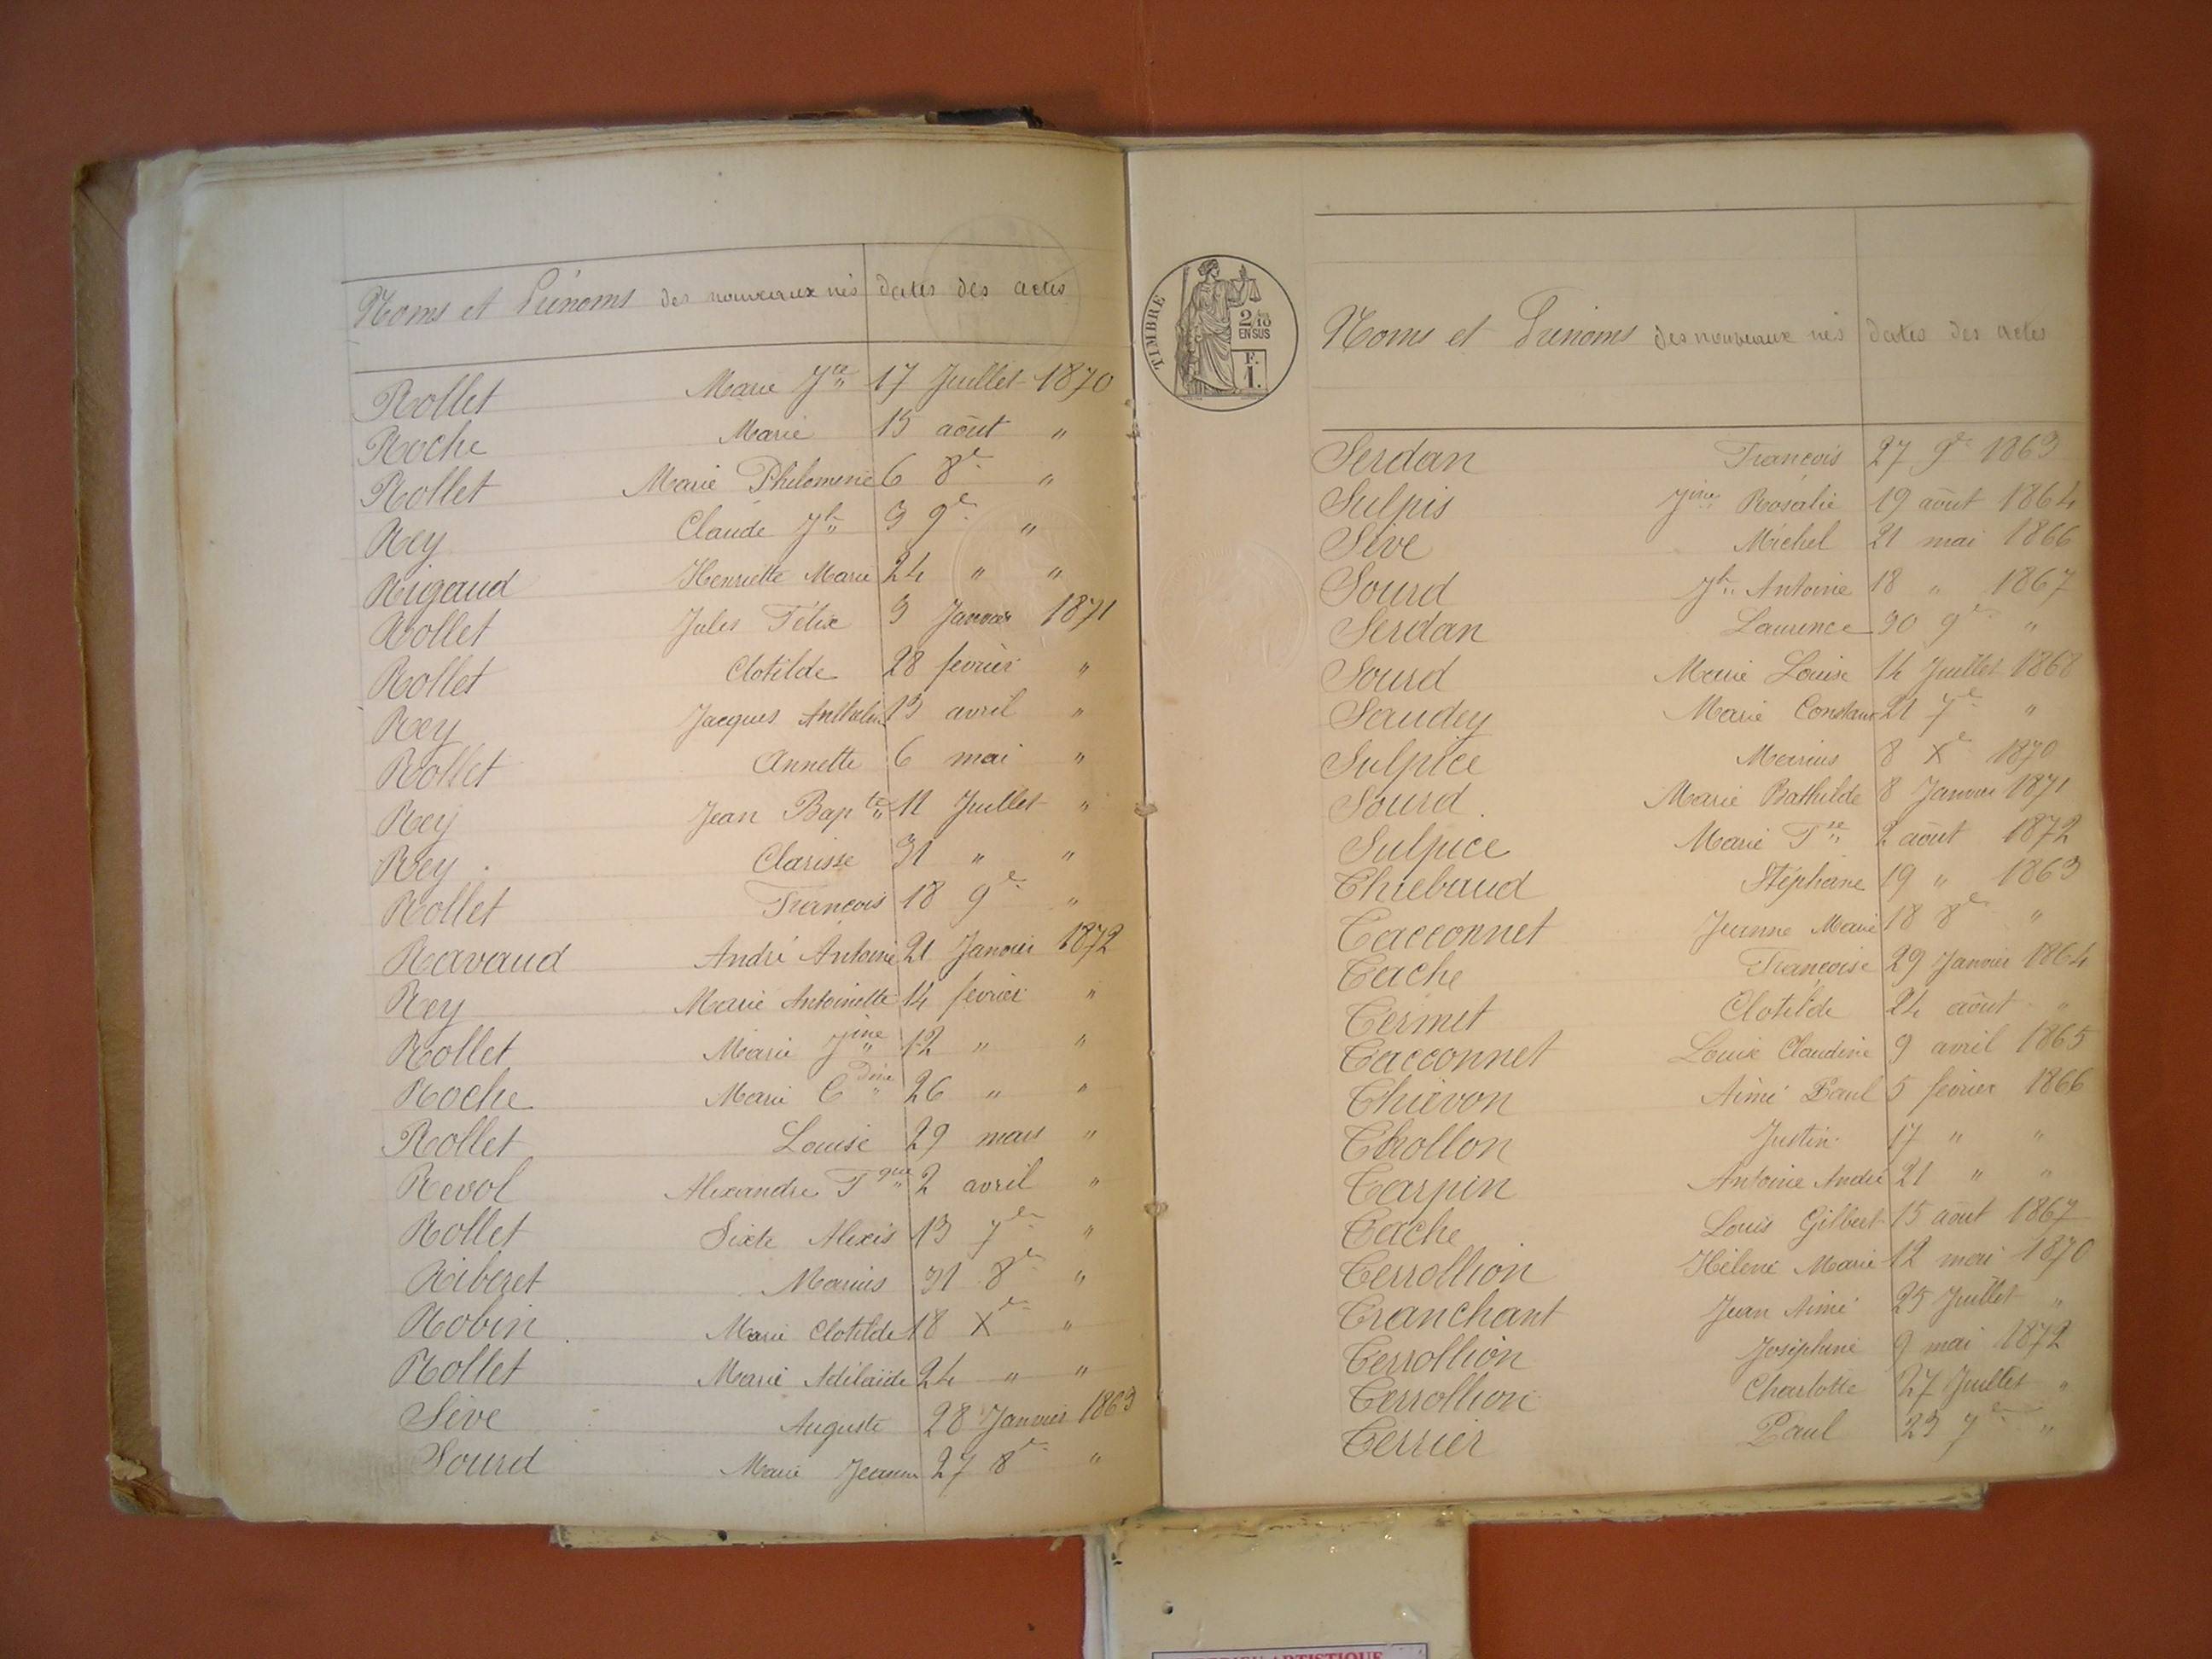 Noms et Prénoms des nouveaux nés dates des actes
Rollet Marie Jne 17 Juillet 1870
Roche Marie 15 août "
Rollet Marie Philomene 6 8e "
Rey Claude Jh 3 9e "
Rigaud Henriette Marie 24 " "
Rollet Jules Félix 3 Janvier 1871
Rollet Clotilde 28 fevrier "
Rey Jacques Anthelm 13 avril "
Rollet Annette 6 mai "
Rey Jean Bapte 11 Juillet "
Rey Clarisse 31 " "
Rollet Francois 18 9e "
Ravaud André Antoine 21 Janvier 1872
Rey Marie Antoinette 14 fevrier "
Rollet Marie Jine 12 " "
Roche Marie Cdine 26 " "
Rollet Louise 29 mars "
Revol Alexandre Fque 2 avril "
Rollet Sixte Alexis 13 7e "
Riberet Marius 31 8e "
Robin Marie Clotilde 18 Xe "
Rollet Marie Adélaïde 24 " "
Sève Auguste 28 Janvier 1863
Sourd Marie Jeanne 27 8e "
TIMBRE
2/10
EN SUS
F.
1.
Noms et Prénoms des nouveaux nés dates des actes
Serdan Francois 27 9e 1863
Sulpis Jine Rosalie 19 août 1864
Sève Michel 21 mai 1866
Sourd Jh Antoine 18 " 1867
Serdan Laurence 30 9e "
Sourd Marie Louise 14 Juillet 1868
Saudey Marie Constance 21 7e "
Sulpice Marius 8 Xe 1870
Sourd Marie Bathilde 8 Janvier 1871
Sulpice Marie Fse 2 août 1872
Thiebaud Stéphane 19 " 1863
Tacconnet Jeanne Marie 18 8e "
Tache Francoise 29 Janvier 1864
Termet Clotilde 24 août "
Tacconnet Louise Claudine 9 avril 1865
Thievon Aimé Paul 5 fevrier 1866
Thollon Justin 17 " "
Tarpin Antoine André 21 " "
Tache Louis Gilbert 15 août 1867
Terrollion Hélène Marie 12 mai 1870
Tranchant Jean Aimé 25 Juillet "
Terrollion Joséphine 9 mai 1872
Terrollion Charlotte 27 Juillet "
Terrier Paul 23 7e "